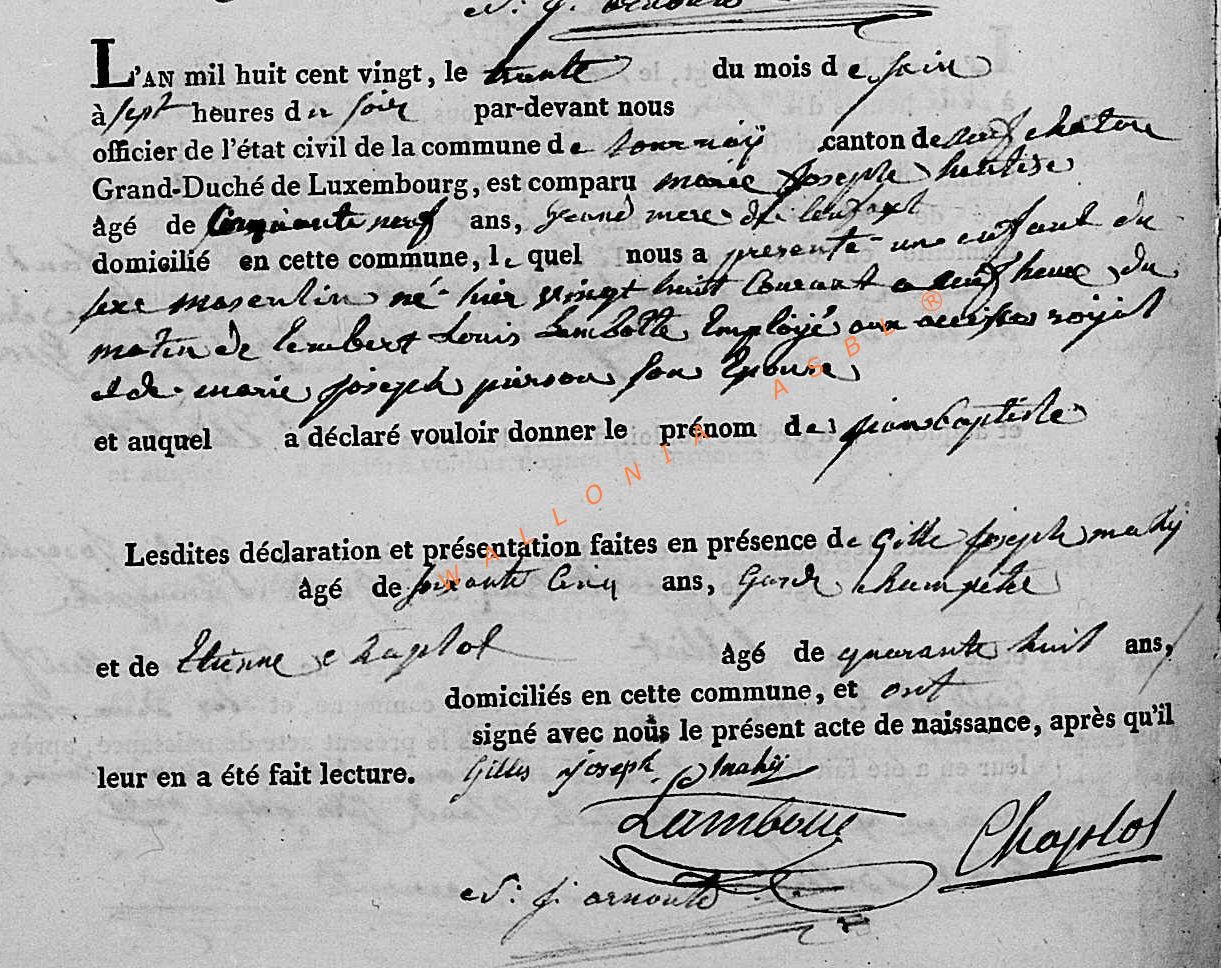 N. J. arnould
L'AN mil huit cent vingt, le trente du mois de juin
à sept heures du soir par-devant nous
officier de l'état civil de la commune de tournaÿ canton de neufchateau
Grand-Duché de Luxembourg, est comparu marie joseph
âgé de Cinquante neuf ans, grand mere de l'enfant
domicilié en cette commune, le quel nous a presenté un enfant du
sexe masculin né hier vingt huit Courant a neuf heure du
matin de lambert Louis Lambotte Employé aux accises
et de marie joseph pierson son Epouse
et auquel a déclaré vouloir donner le prénom de jeanbaptiste
Lesdites déclaration et présentation faites en présence de Gille joseph mahÿ
âgé de soixante Cinq ans, Garde champetre
et de Etienne Chaplot âgé de quarante huit ans,
domiciliés en cette commune, et ont
signé avec nous le présent acte de naissance, après qu'il
leur en a été fait lecture. Gilles joseph Mahÿ
Lambotte Chaplot
N. J. arnould
WALLONIA ASBL ®